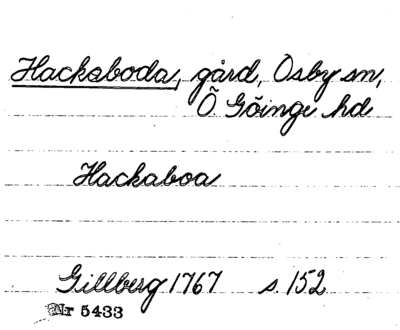 Hackaboda, gård, Osby sn,
Ö. Göinge hd
Hackaboa
Gillberg 1767 s. 152
Nr 5433